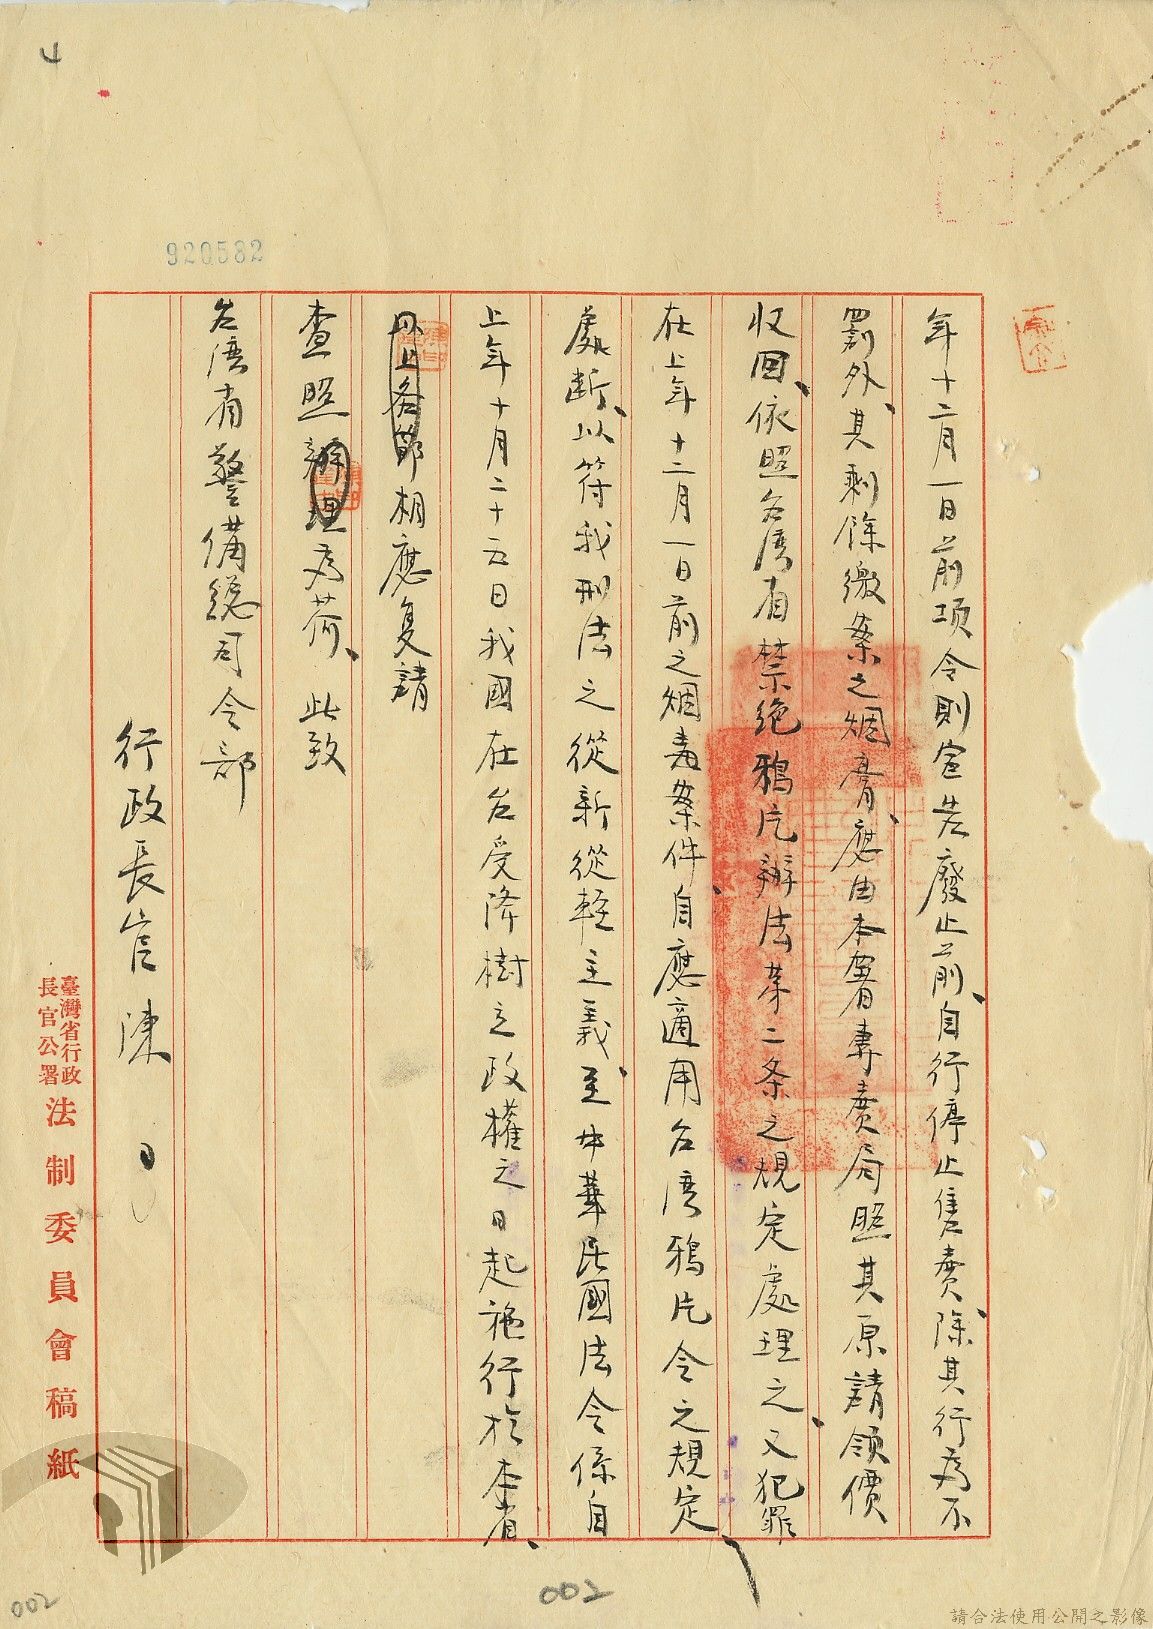 920582
年十二月一日前項令則宣告廢止前、自行停止售賣、除其行為不
罰外、其剩餘繳案之烟膏、應由本署專賣局照其原請領價
收回、依照台湾省禁绝鴉片辦法苐二条之規定處理之、又犯罪
在上年十二月一日前之烟毒案件、自應適用台湾鴉片令之規定
處断、以符我刑法之從新從輕主義、至中華民國法令係自
上年十月二十五日我國在台受降樹立政權之日起施行於本省、
以上各節相應复請
查照辦理為荷、此致
台湾省警備總司令部
行政長官陳
臺灣省行政長官公署法制委員會稿紙
002
002
請合法使用公開之影像